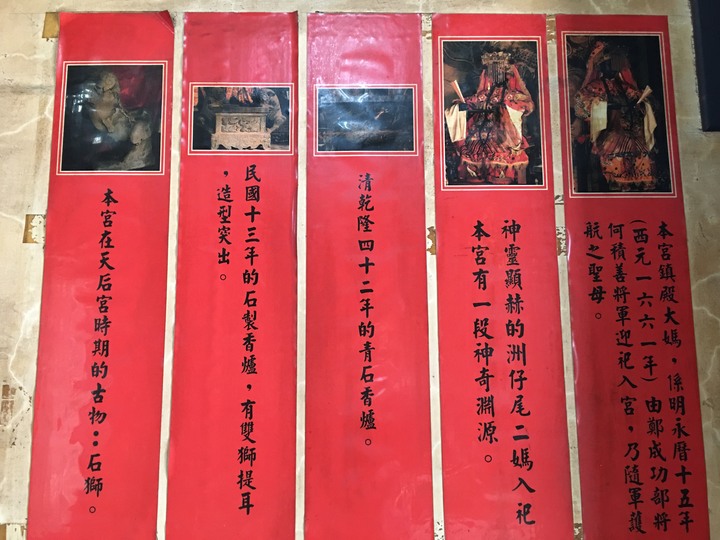 本宮鎮殿大媽，係明永曆十五年
（西元一六六一年）由鄭成功部將
何積善將軍迎祀入宮，乃隨軍護
航之聖母。
神靈顯赫的洲仔尾二媽入祀
本宮有一段神奇淵源。
清乾隆四十二年的青石香爐。
民國十三年的石製香爐，有雙獅提耳
，造型突出。
本宮在天后宮時期的古物：石獅。